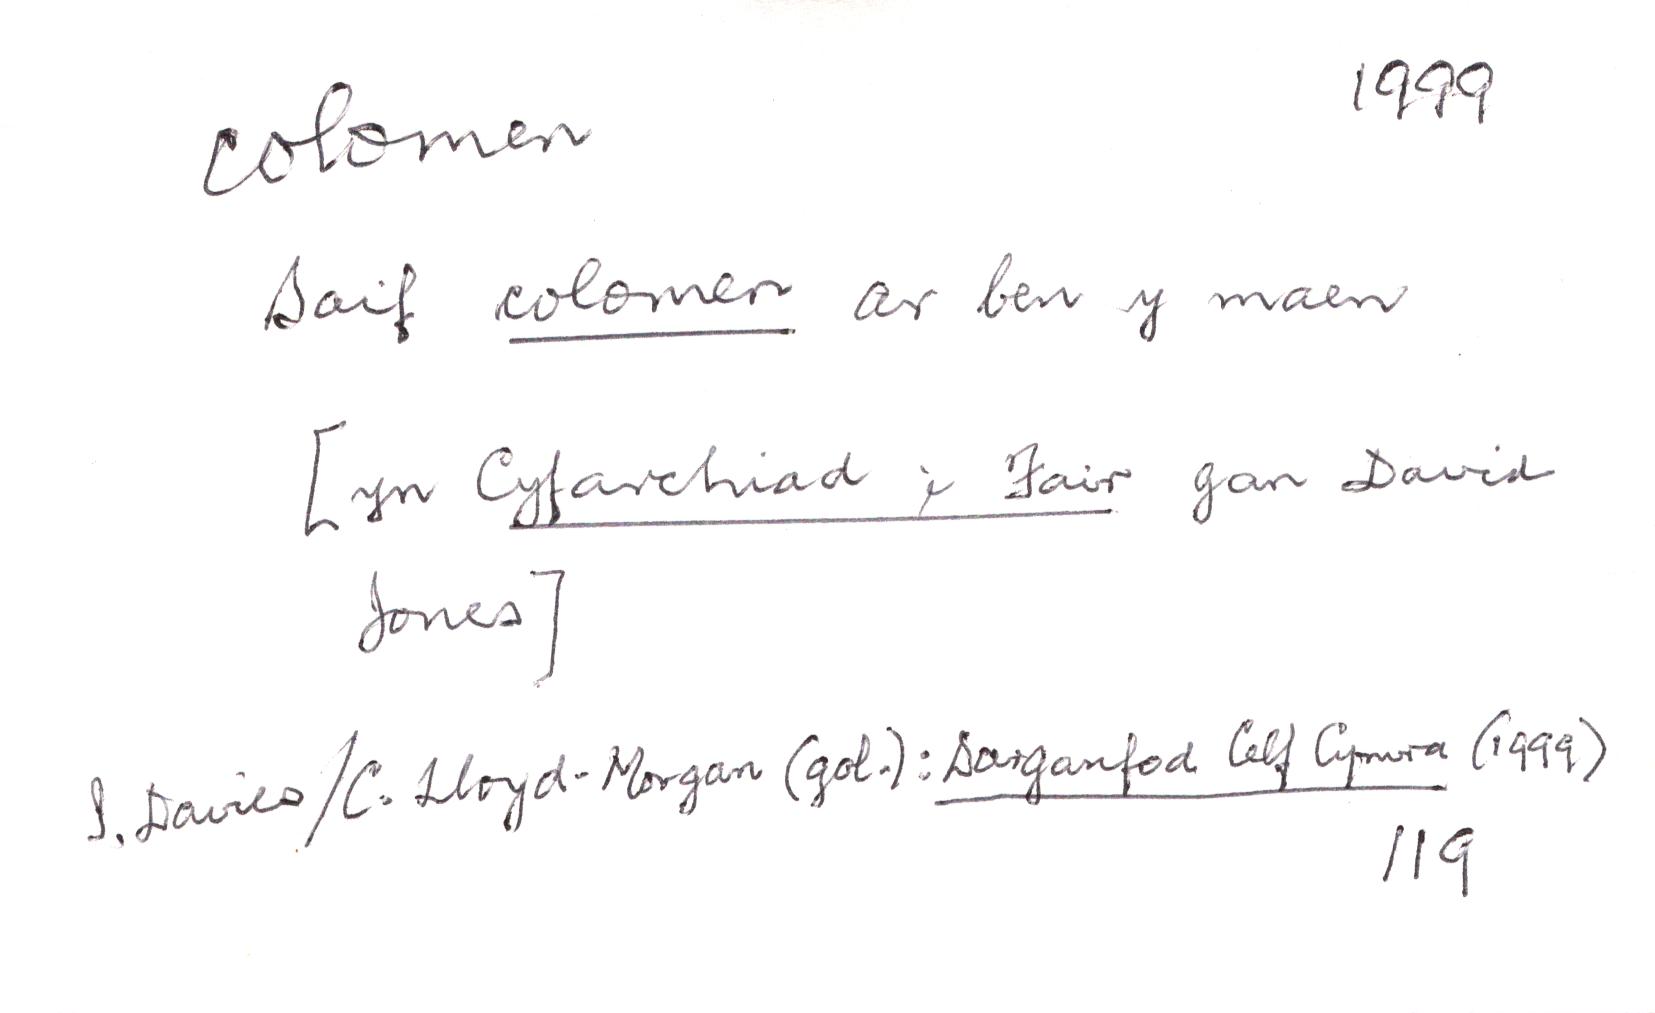 colomen 1999
Saif colomen ar ben y maen
[yn Cyfarchiad i Fair gan David
Jones]
I. Davies/C. Lloyd-Morgan (gol.): Darganfod Celf Cymru (1999)
119